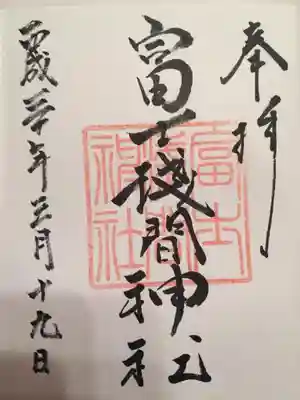 奉拝
富士淺間神社
富士
淺間
神社
平成三十年三月十九日